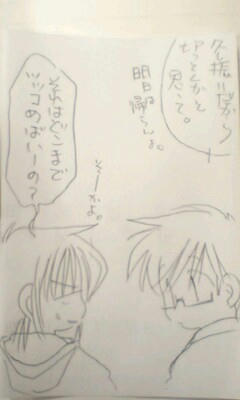 久し振りだから
切っとくかと
思って。
明日
帰らんよ。
そーかよ。
それはどこまで
ツッコめばいーの？